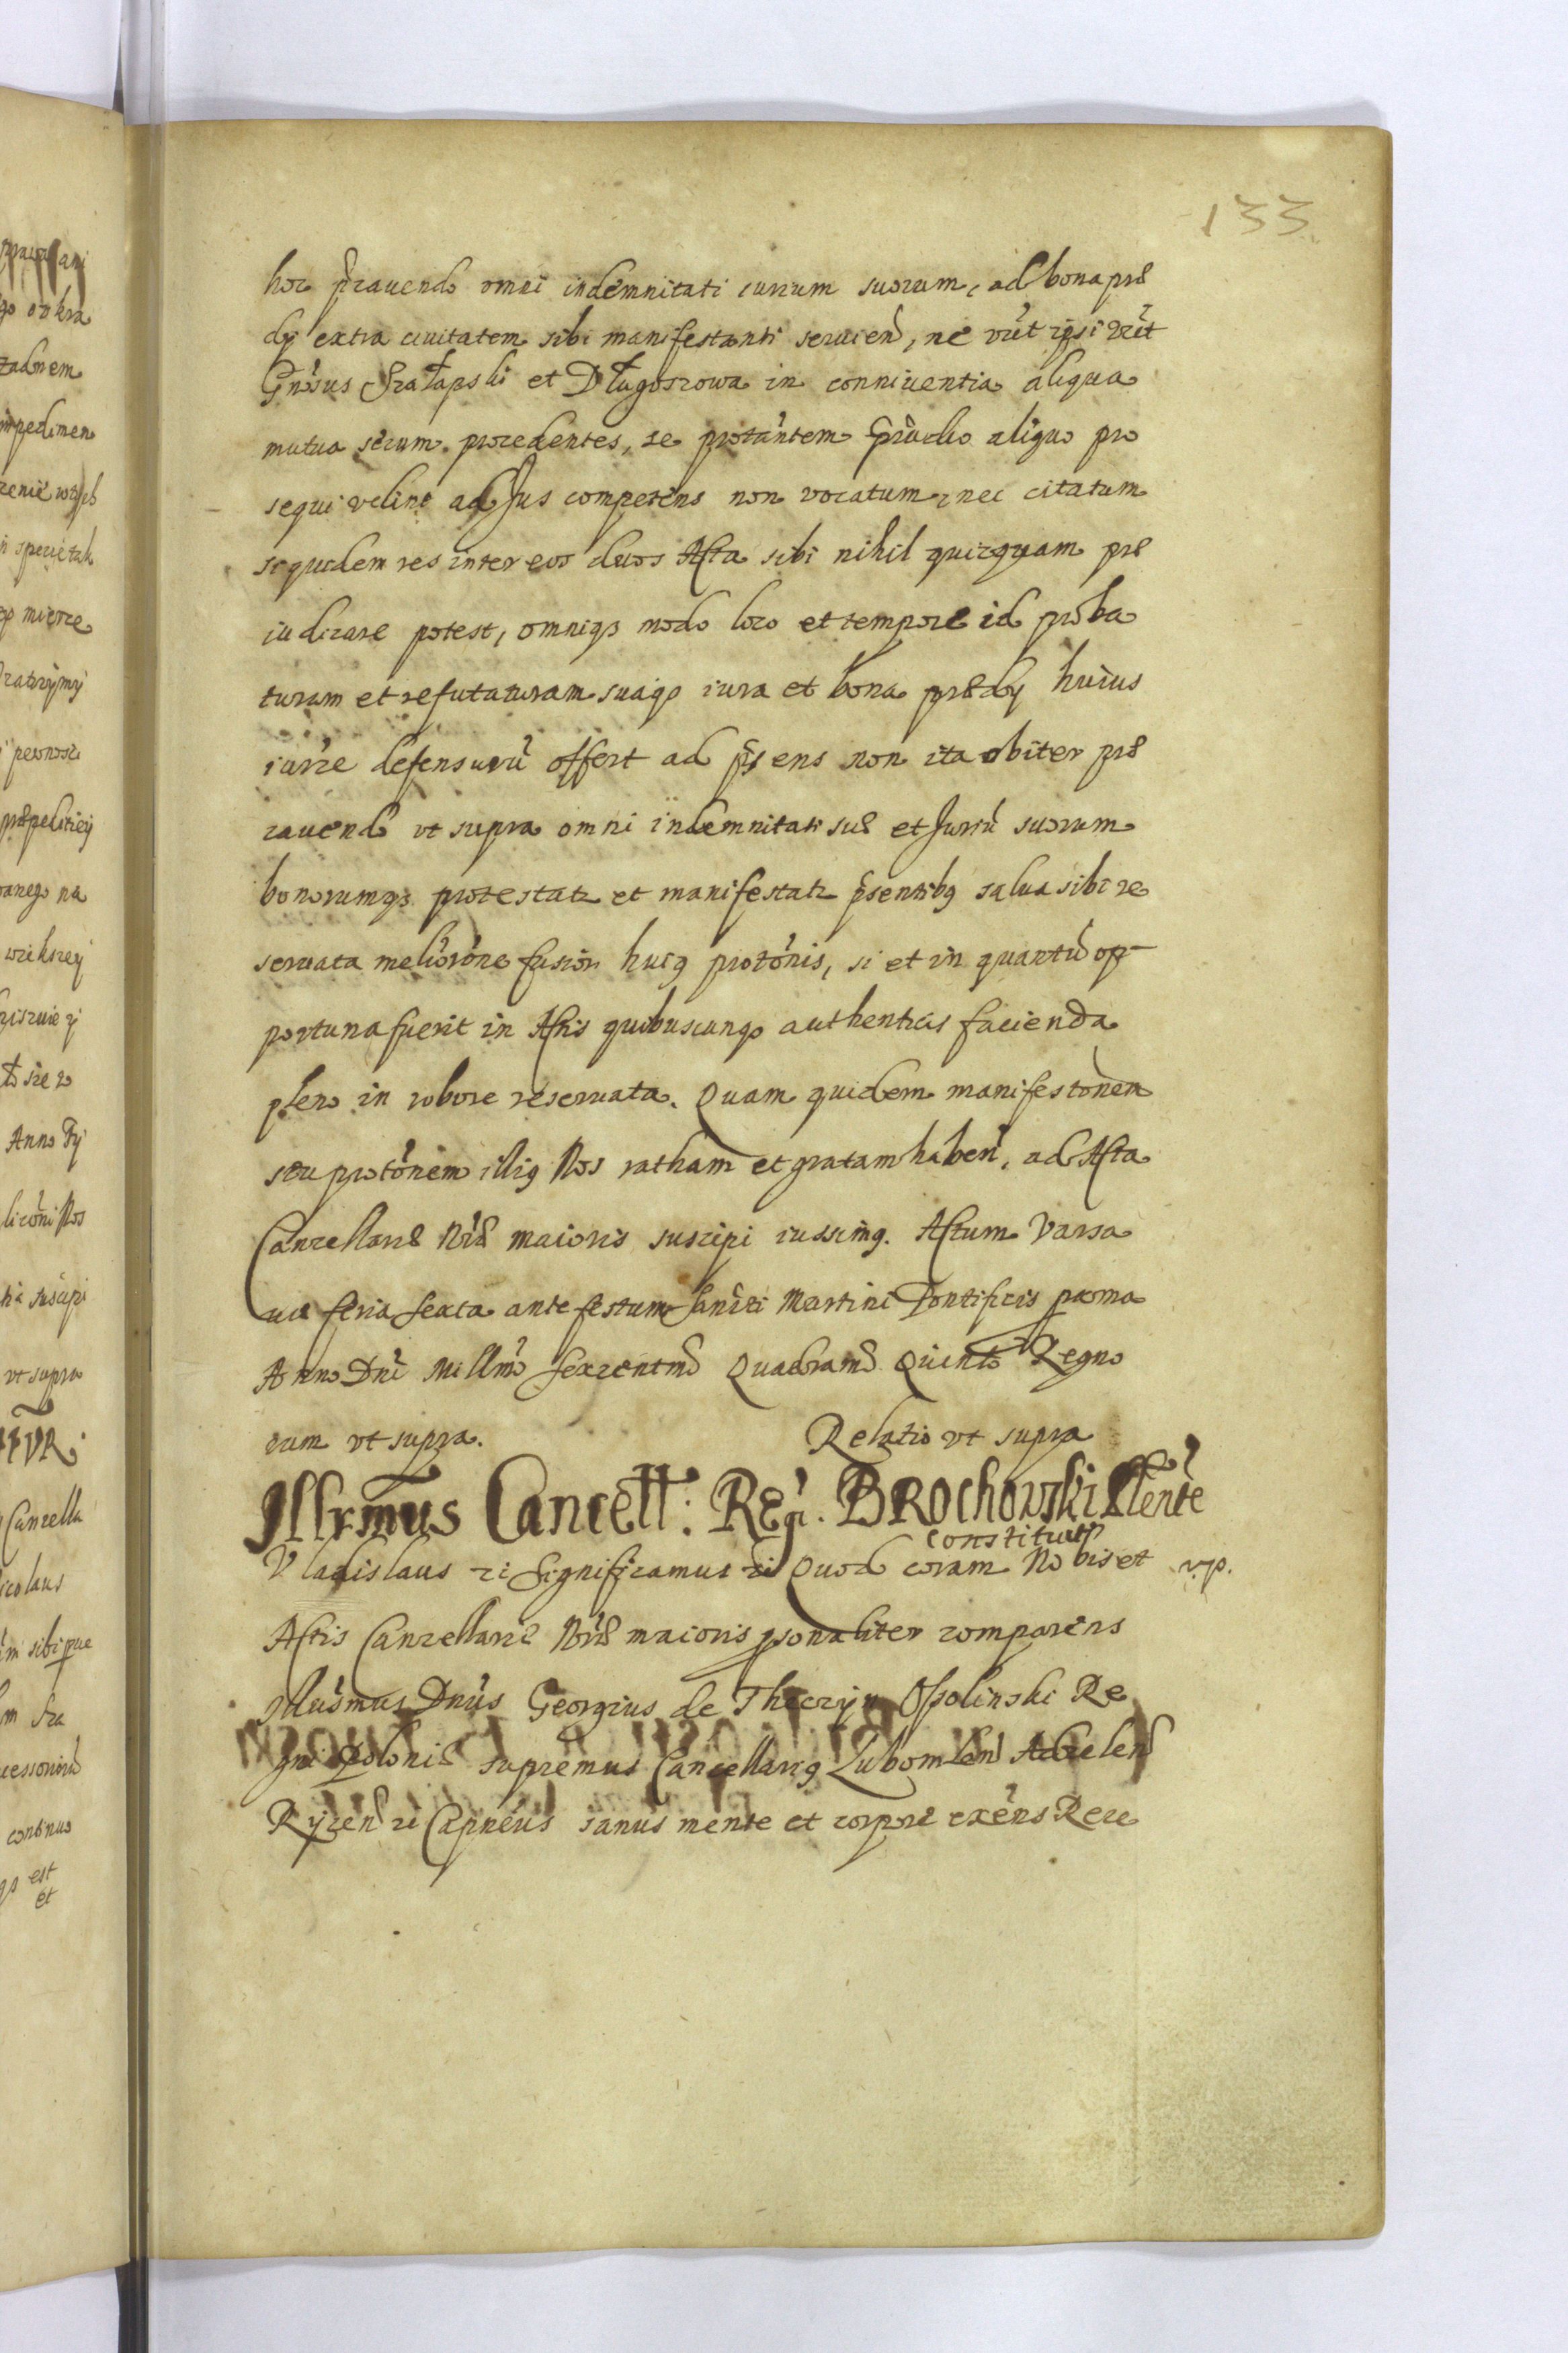 133
hoc p̃cauendo omni indemnitati iurium suorum, ad bona præ
dij extra ciuitatem sibi manifestanti seruieñ, ne vũt ipsi
Gñosus et Długoszowa in conniuentia aliqua
mutua secum procedentes, se protãntem p̃iudicio aliquo pro
sequi velint ad Jus competens non vocatum, nec citatum
siquidem res inter eos duos Acta sibi nihil quicquam præ
iudicare potest, omniqȝ modo loco et tempore id proba
turam et refutaturam suaqȝ iura et bona prædij huius
iurre defensurũ offert ad p̃sens non ita obiter præ
cauend vt supra omni indemnitati suæ et Juriũ suorum
bonorumqȝ protestatr et manifestatr p̃sentibꝰ salua sibi re
seruata meliorõne fusiori huiꝰ protõnis, si et in quantũ op
portuna fuerit in Actis quibuscunqȝ authenticis facienda
pleno in robore reseruata. Quam quidem manifestõnem
seu protõnem illiꝰ Nos ratham et gratam habeñ, ad Acta
Cancellariæ Nr̃æ maioris suscipi iussimꝰ. Actum Varsa
uiæ feria sexta ante festum Sancti Martini Pontificis proxima
Anno Dñi Millm̃o sexcentmo Quadramo Quinto Regno
rum vt supra. Relatio vt supra
Illrmus Cancell: Reg̃. BROchowski Plente
constituit
Vladislaus ꝛc Significamus ꝛc Quod coram Nobis et v.p.
Actis Cancellariæ Nr̃æ maioris p̱sonaliter comparens
Illus̃mus Dñus Georgius de Theczyn Ossolinski Re
gni Poloniæ supremus Cancellariꝰ Lubomleñ Adzeleñ
Ryceñ ꝛc Capneus sanus mente et corpore exẽns Rece